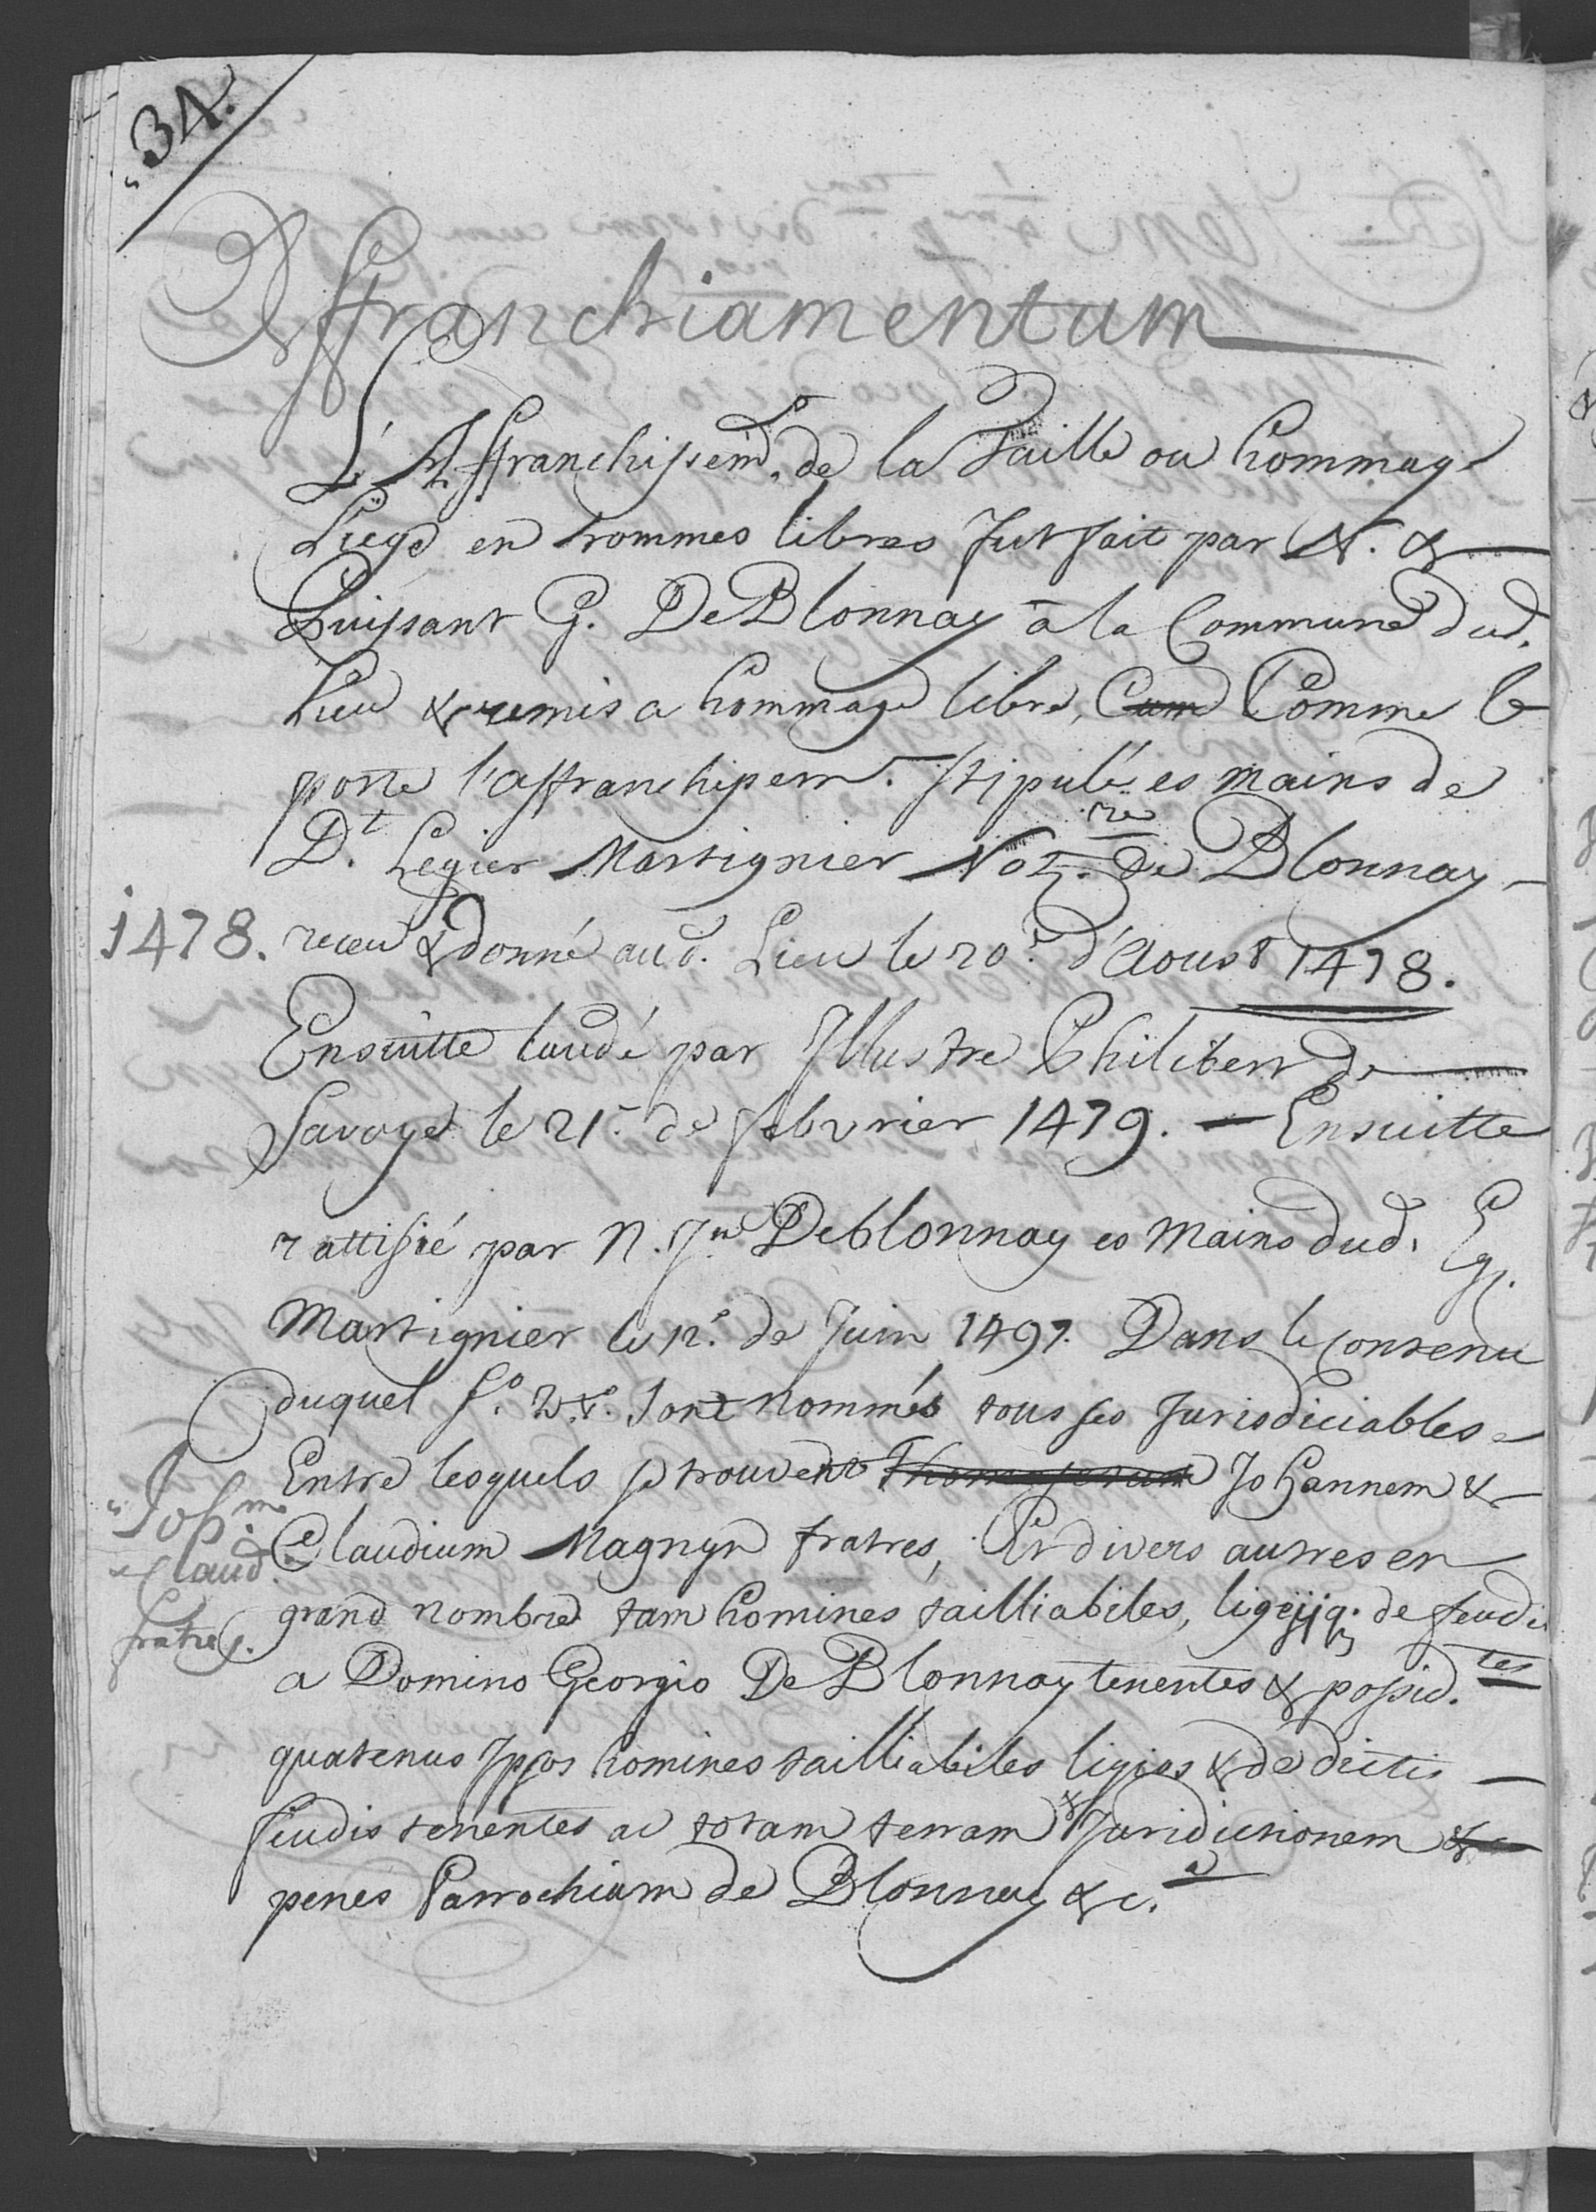 34.
Affranchiamentum
L'Affranchissemt. de la Taille ou hommage
Liege en hommes libres fut fait par N. &
Puissant G. De Blonnay à la Commune dud.
Lieu & remis a hommage libre, Cum Comme le
porte l'affranchissem. stipulé es mains de
Dt. Legier Martignier Notre. de Blonnay
1478. receu & donné aud. Lieu le 20e. d'Aoust 1478.
Ensuitte laudé par Illustre Philibert de
Savoye le 21e. de febvrier 1479. — Ensuitte
rattifié par N. Jn. DeBlonnay es Mains dud. Eg.
Martignier le 12e. de Juin 1497. Dans le contenu
duquel fo. sont Nommés tous ses Jurisdiciables
Entre lesquels se trouvent Johannem &
Claudium Magnyn fratres, Et divers autres en
Johm.
& Claud.
fratres.
grand nombre tam homines tailliabiles, ligeijq; de feudis
a Domino Georgio De Blonnay tenentes & possid.tes
quatenus Ipsos homines tailliabiles ligios & de dictis
feudis tenentes ac totam terram & Juridictionem &
penes Parrochiam de Blonnay &c.a